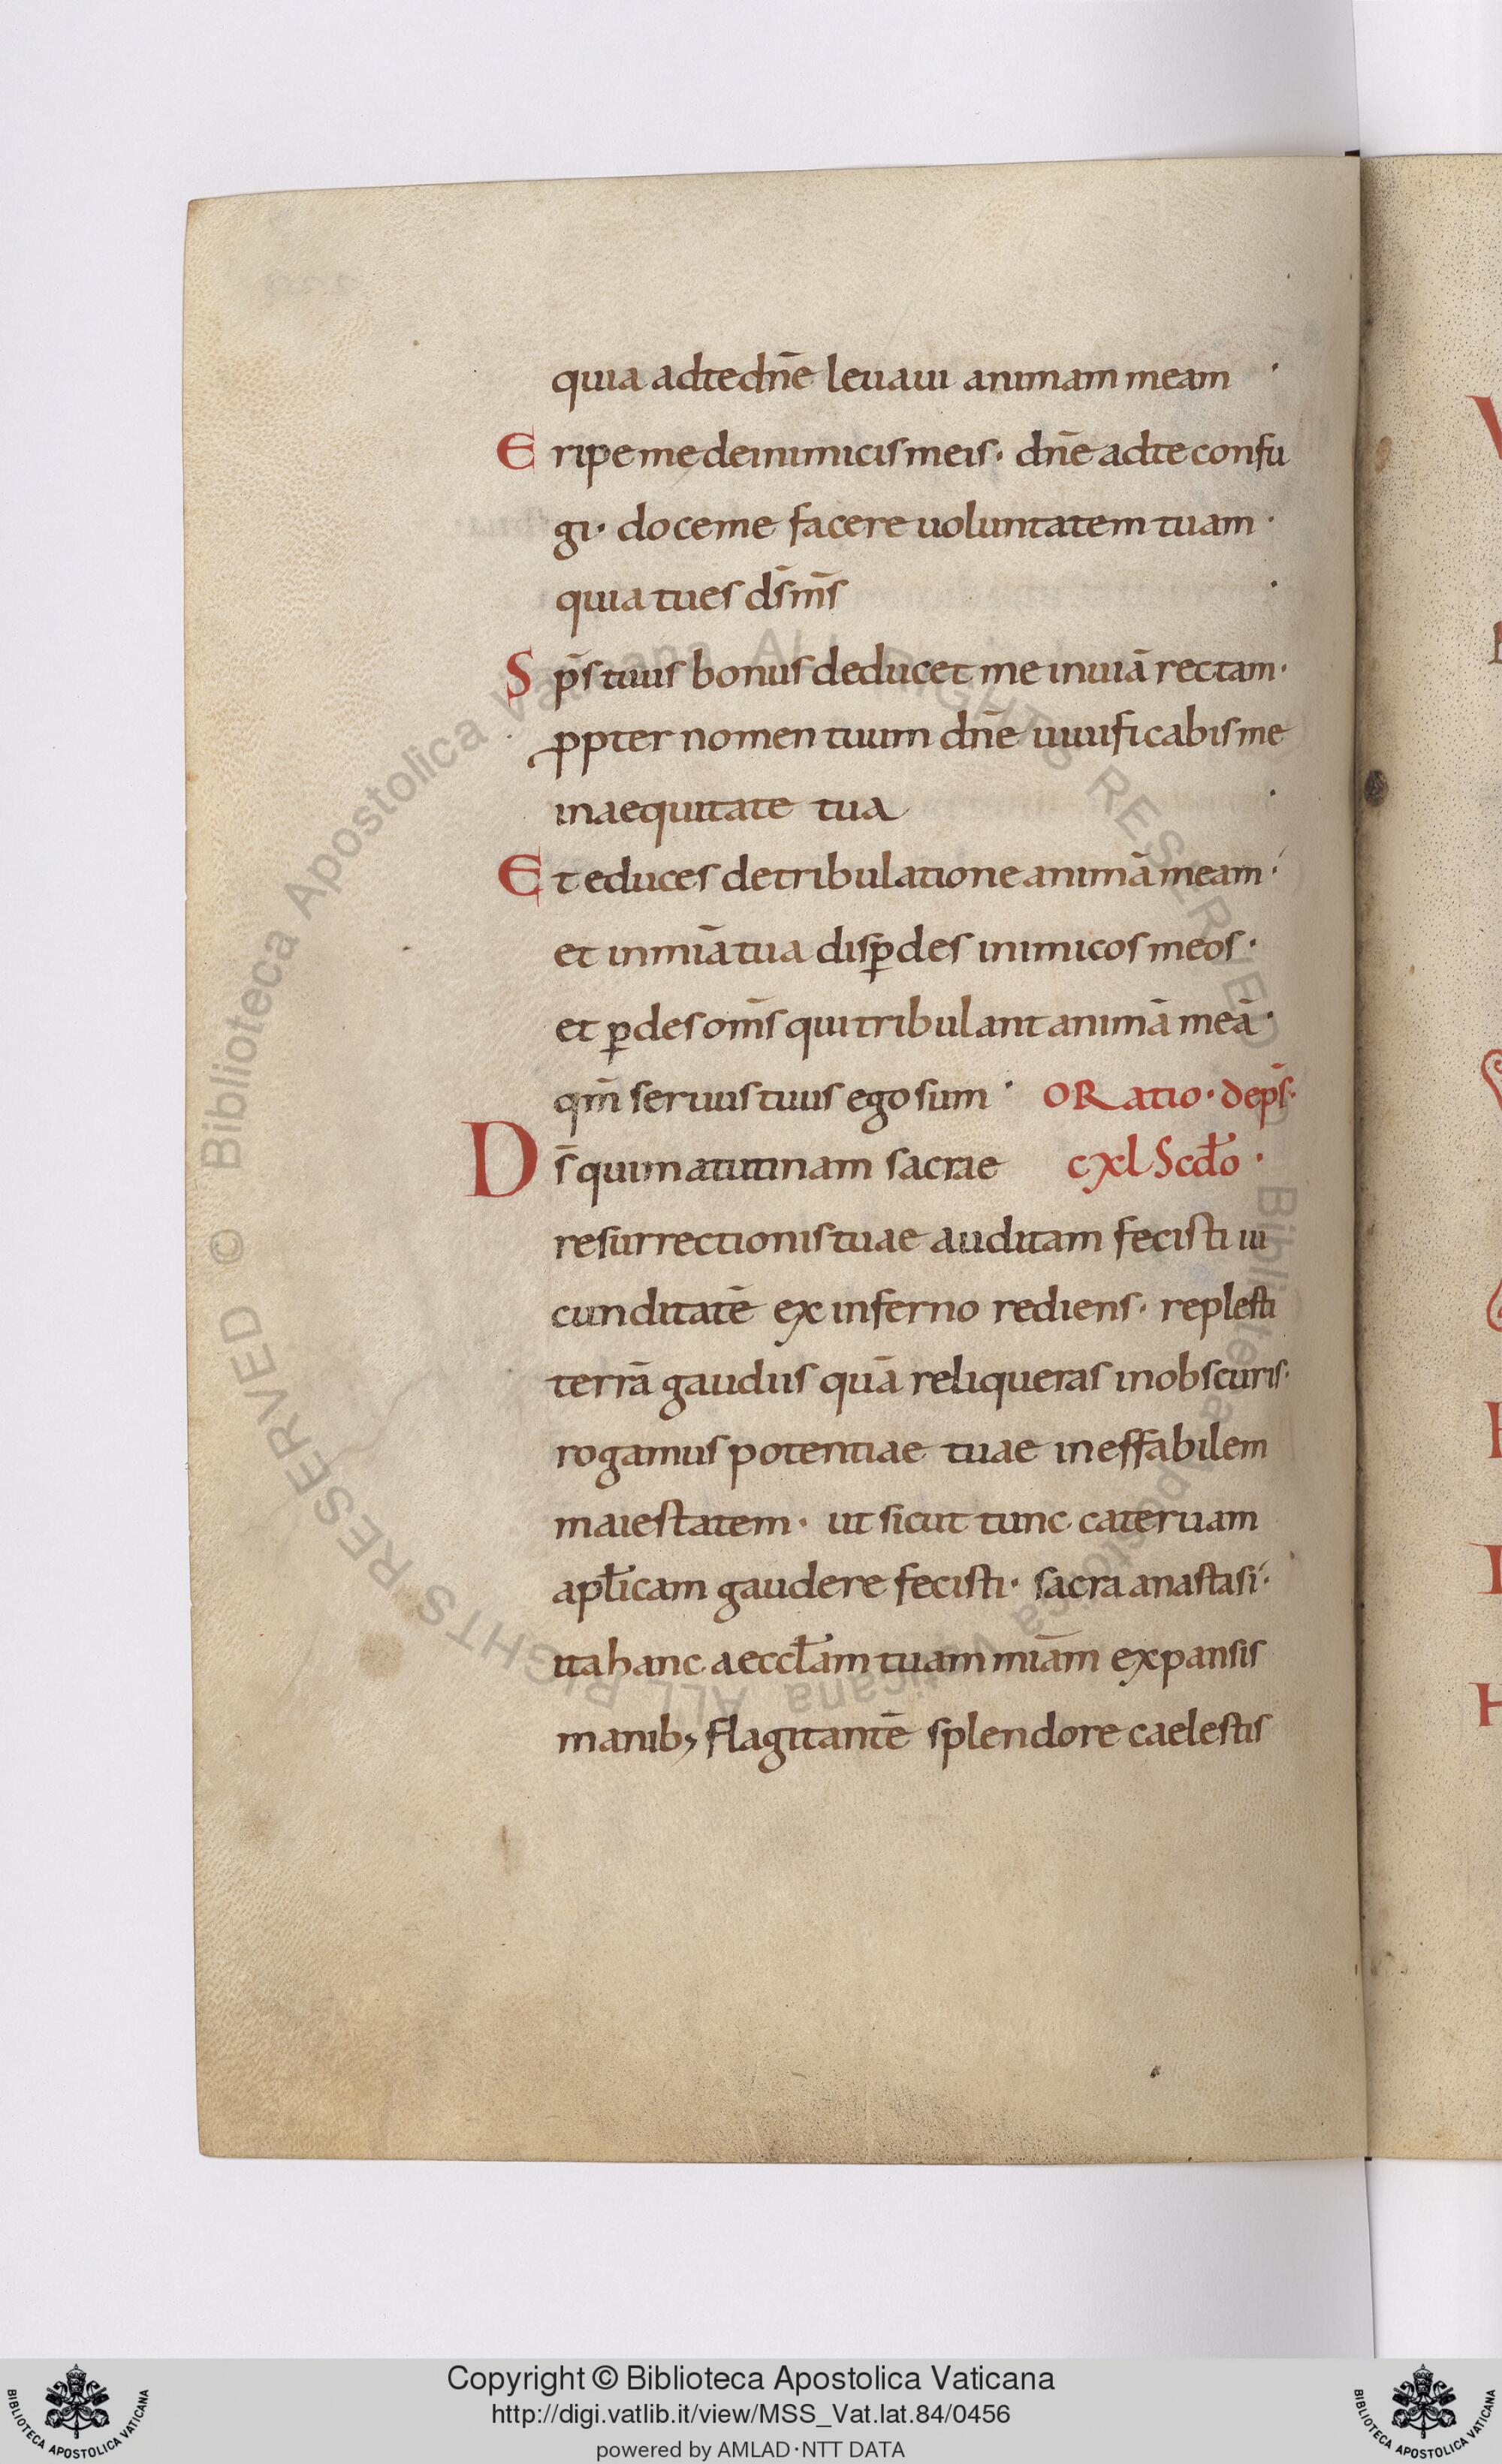 quia adte dn̄e leuaui animam meam ·
Eripe me de inimicis meis · dn̄e ad te confu
gi · doce me facere uoluntatem tuam ·
quia tu es ds̄ ms̄ ·
Sp̄s tuus bonus deducet me in uiā rectam ·
ꝓpter nomen tuum dn̄e uiuificabis me
in aequitate tua ·
Et educes de tribulatione animā meam ·
et in miā tua disꝑdes inimicos meos ·
et ꝑdes om̄s qui tribulant animā meā ·
qm̄ seruus tuus ego sum · ORatio · de ps̄ ·
Ds̄ qui matutinam sacrae cxl Scd̄o ·
resurrectionis tuae auditam fecisti iu
cunditatē ex inferno rediens · replesti
terrā gaudiis quā reliqueras in obscuris ·
rogamus potentiae tuae ineffabilem
maiestatem · ut sicut tunc cateruam
apl̄icam gaudere fecisti · sacra anastasi ·
ita hanc aeccl̄am tuam miām expansis
manib; flagitantē splendore caelestis
Biblioteca Apostolica Vaticana ALL RIGHTS RESERVED ©
Biblioteca Apostolica Vaticana ALL RIGHTS RESERVED ©
Copyright © Biblioteca Apostolica Vaticana
http://digi.vatlib.it/view/MSS_Vat.lat.84/0456
powered by AMLAD·NTT DATA
BIBLIOTECA APOSTOLICA VATICANA
BIBLIOTECA APOSTOLICA VATICANA